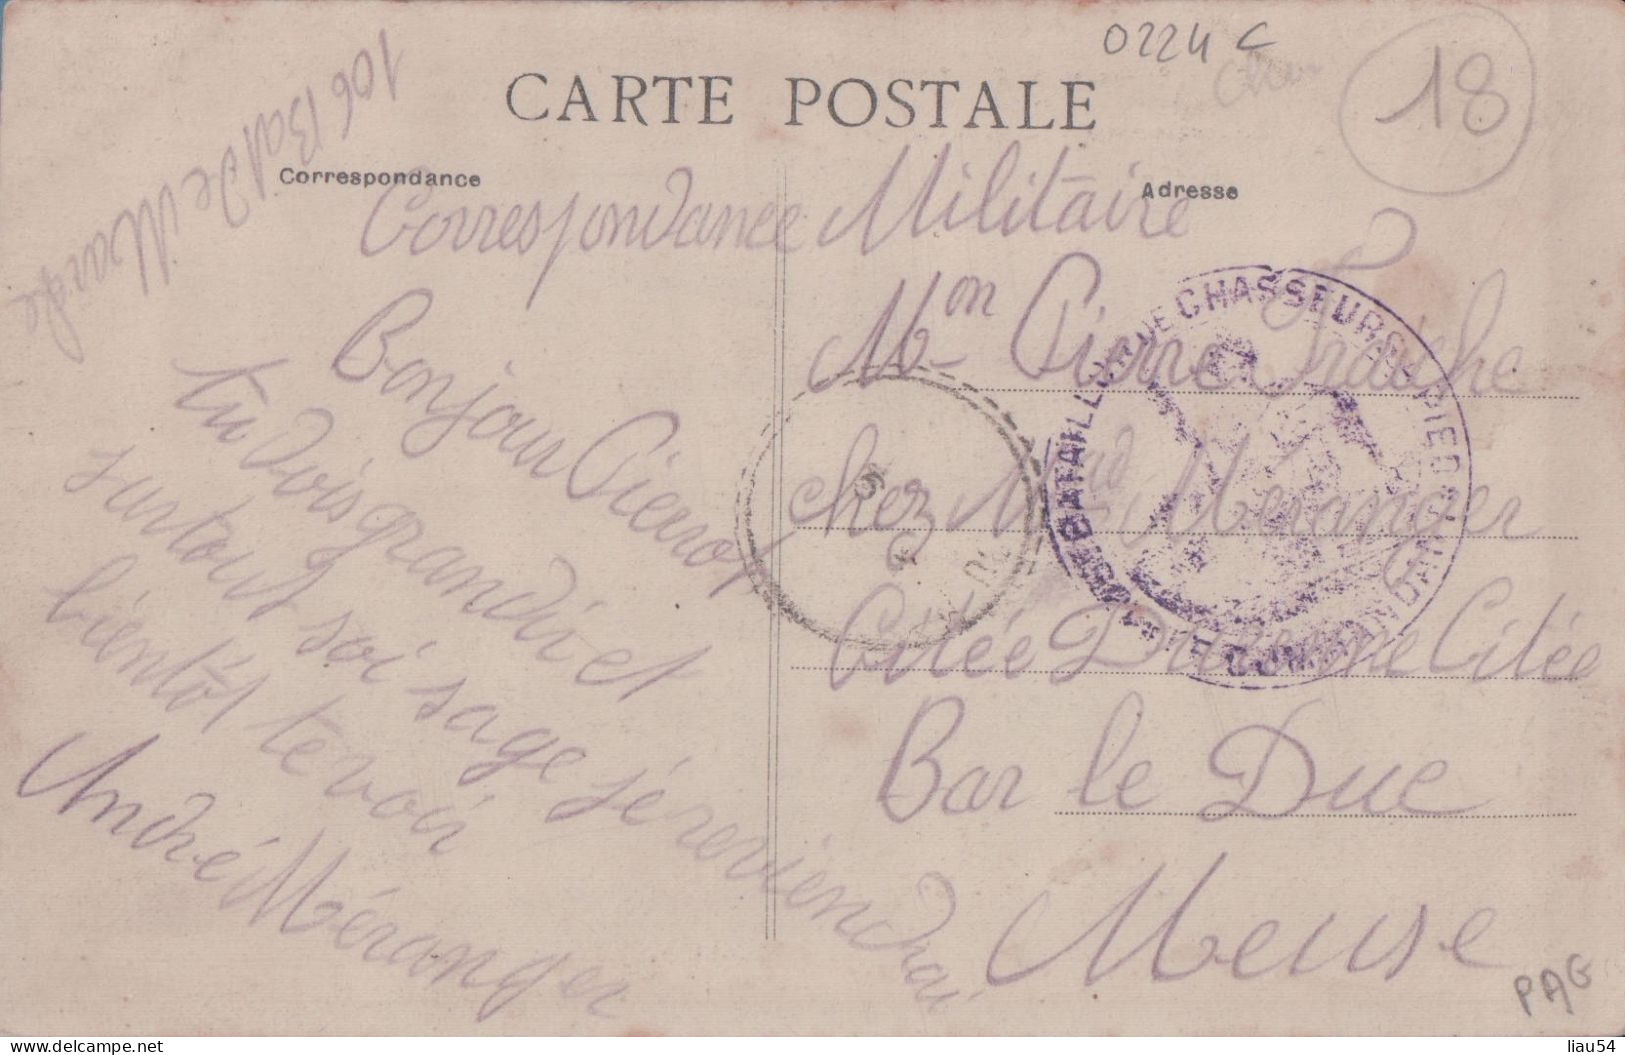 0224 C
Cher
18
CARTE POSTALE
106 Bat De Marche
Correspondance
Adresse
Correspondance Militaire
Bonjour Pierrot
tu dois grandir et
surtout soi sage je reviendrai
bientôt te voir
André Méranger
Mon Pierre Fraiche
chez Mad Méranger
Citée Citée
Bar le Duc
Meuse
BATAILLON DE CHASSEURS A PIED
LE COMMANDANT
PAG
liau54
delcampe.net